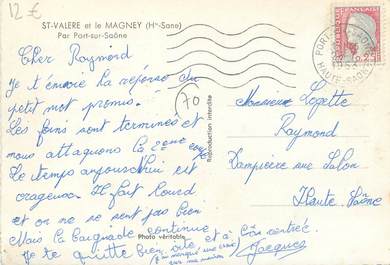 12 €
ST-VALERE et le MAGNEY (Hte-Sane)
Par Port-sur-Saône
Cher Raymond
Je t'envoie la réponse du
petit mot promis.
Les foins sont terminés et
nous attaquons la 2eme coupe
Le temps aujourd'hui est
orageux Il fait lourd
et on ne se sent pas bien
Mais la baignade continue
Je te quitte bien vite et à la rentrée.
Jacques
j'ai marqué une croix
sur ma maison
Photo véritable
Reproduction interdite
70
Monsieur
Raymond
Dampierre sur Salon
Haute Saône
PORT
HAUTE SAONE
FRANÇAISE
0,25